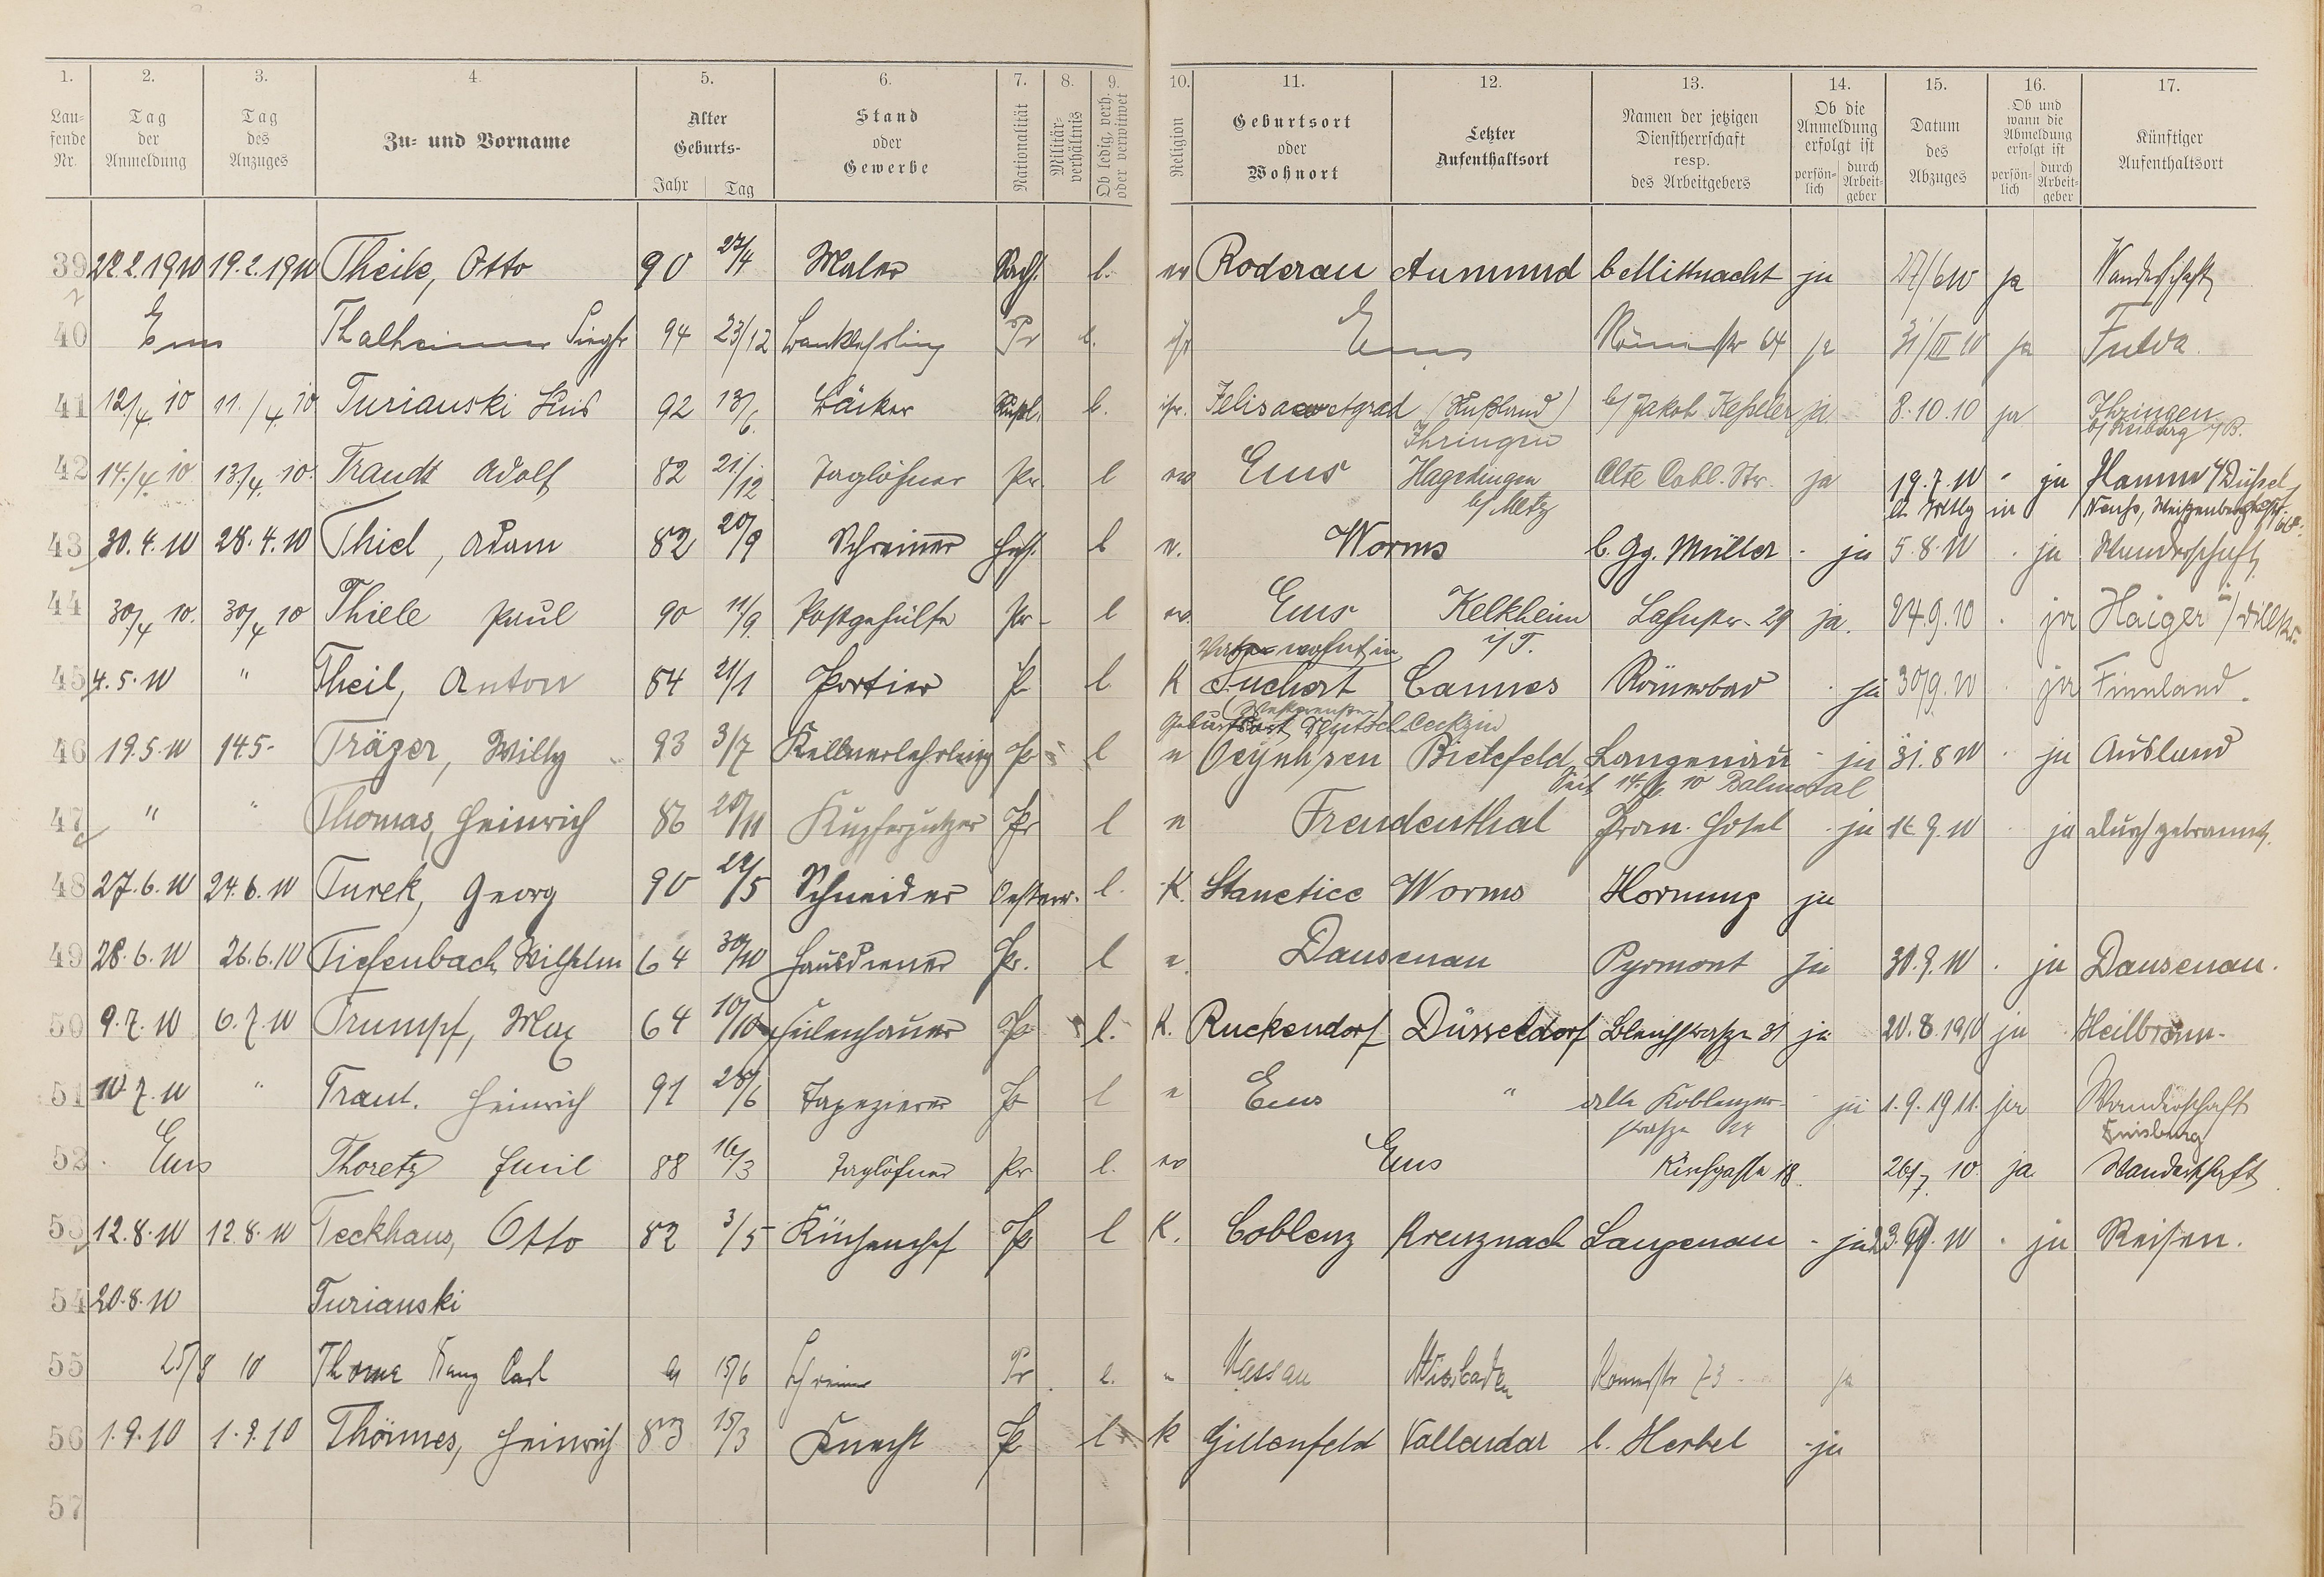 1. 2. 3. 4. 5. 6. 7. 8. 9. 10. 11. 12. 13. 14. 15. 16. 17.
Laufende Nr.
Tag der Anmeldung
Tag des Anzuges
Zu- und Vorname
Alter Geburts-
Jahr Tag
Stand oder Gewerbe
Nationalität
Militärverhältnis
Ob ledig, verh. oder verwitwet
Religion
Geburtsort oder Wohnort
Letzter Aufenthaltsort
Namen der jetzigen Dienstherrschaft resp. des Arbeitgebers
Ob die Anmeldung erfolgt ist
persönlich durch Arbeitgeber
Datum des Abzuges
Ob und wann die Abmeldung erfolgt ist
persönlich durch Arbeitgeber
Künftiger Aufenthaltsort
39 22.2.1910 19.2.1910 Theile, Otto 90 27/4 Maler Sachs. l. ev Roderau Aumund b Mittnacht ja 27/6 10 ja Wanderschaft
40 Ems Thalheimer Siegfr 94 23/12 Banklehrling Pr l. isr Ems Römerstr 64 ja 31/III 10 ja Fulda.
41 12./4. 10 11./4. 10 Turianski 92 13/6. Bäcker Rußl. l. isr. Jelisawetgrad (Rußland) b/ Jakob Keßeler ja. 8.10.10 ja Ihringen
Ihringen b/ Freiburg i/B.
42 14./4. 10 13./4. 10. Traudt Adolf 82 21./12 Taglöhner Pr. l ev Ems Hagedingen Alte Cobl. Str. ja 19.7.10 " ja Hamm b/ Düssel
b/ Metz
43 30.4.10 28.4.10 Thiel, Adam 82 20/9 Schreiner Hess. l e. Worms b. Gg. Müller - ja 5.8.10 . ja Wanderschaft
44 30/4 10. 30/4 10 Thiele Paul 90 11/9. Postgehülfe Pr. l ev. Ems Kelkheim Lahnstr. 29 ja. 24.9.10 . ja Haiger i/ Dillkr.
wohnt in i/T.
45 4.5.10 " Theil, Anton 84 21/1 Portier P l K Tuchert Cannes Römerbad . ja 30/9.10 . ja Finnland.
(Westpreußen)
Geburtsort Deutsch Ceekzin
46 19.5.10 14.5- Träger, Willy 93 3/7 Kellnerlehrling Pr l e Oeynhsen Bielefeld Langenau - ja 31.8 10 . ja Ausland
Seit 14. 10 Balmoral
47 " " Thomas, Heinrich 86 20/11 Kupferputzer Pr l e Freudenthal Pran. Hotel . ja 9.10 . ja durchgebrannt.
48 27.6.10 24.6.10 Turek, Georg 90 24/5 Schneider Oesterr. l. K. Stanetice Worms Hornung ja
49 28.6.10 26.6.10 Tiefenbach, Wilhelm 64 30/10 Hausdiener Pr. l e. Dausenau Pyrmont ja 30.9.10 . ja Dausenau.
50 9.7.10 6.7.10 Trumpf, Max 64 10/10 Feilenhauer Pr l. K. Ruckendorf Düsseldorf Bleichstraße 31 ja 20.8.1910 ja Heilbronn.
51 10.7.10 " Traut. Heinrich 91 28/6 Tapezierer Pr l e Ems " alte Koblenzer- ja 1.9.1911. ja Wanderschaft
straße 24 Duisburg
52. Ems Thoretz Emil 88 16/3 Taglöhner Pr l. ev Ems Kirchgasse 18. 26/7. 10. ja Wanderschaft
53 12.8.10 12.8.10 Teckhaus, Otto 82 3/5 Küchenchef Pr l K. Coblenz Kreuznach Langenau - ja 23.9.10 . ja Reisen.
54 20.8.10 Turianski
55 25/8 10 Thome Carl 15/6 Schreiner Pr l. Nassau Wiesbaden Römerstr 73 ja
56 1.9.10 1.9.10 Thönnes, Heinrich 83 15/3 Knecht P l k Gillenfeld Vallendar b. Herbel - ja
57